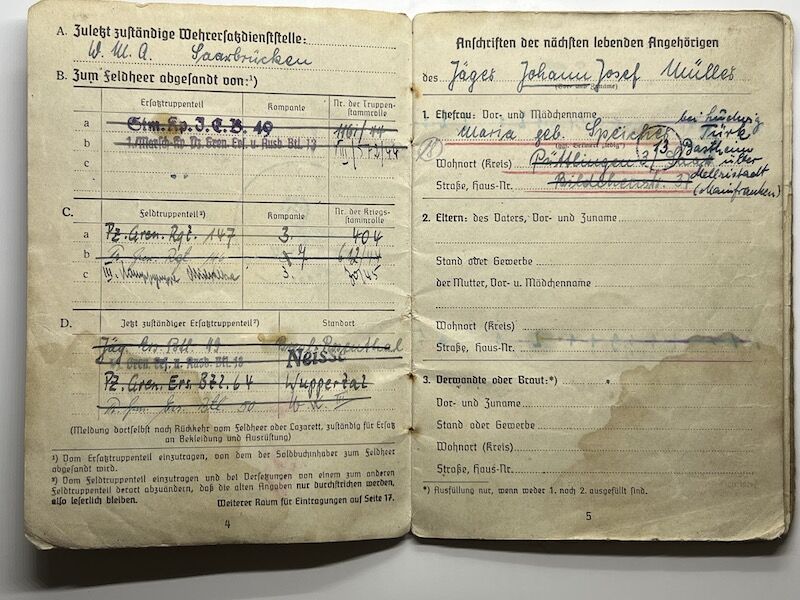 A. Zuletzt zuständige Wehrersatzdienststelle:
W. M. A. Saarbrücken
B. Zum Feldheer abgesandt von:¹)
Ersatztruppenteil Kompanie Nr. der Truppenstammrolle
a Stm. Kp. J. E. B. 49
b 1. Marsch Kp. Pz. Gren. Ers. u. Ausb. Btl. 13
c
C. Feldtruppenteil²) Kompanie Nr. der Kriegsstammrolle
a Pz. Gren. Rgt. 147 3. 404
b
c III. 3.
D. Jetzt zuständiger Ersatztruppenteil²) Standort
Jäg. Ers. Btl. 49
Gren. Ers. u. Ausb. Btl. 13 Neisse
Pz. Gren. Ers. Btl. 64 Wuppertal
Btl. 50
(Meldung dortselbst nach Rückkehr vom Feldheer oder Lazarett, zuständig für Ersatz
an Bekleidung und Ausrüstung)
¹) Vom Ersatztruppenteil einzutragen, von dem der Soldbuchinhaber zum Feldheer
abgesandt wird.
²) Vom Feldtruppenteil einzutragen und bei Versetzungen von einem zum anderen
Feldtruppenteil derart abzuändern, daß die alten Angaben nur durchstrichen werden,
also leserlich bleiben. Weiterer Raum für Eintragungen auf Seite 17.
4
Anschriften der nächsten lebenden Angehörigen
des Jäges Johann Josef Mülles
(Vor- und Zuname)
1. Ehefrau: Vor- und Mädchenname bei Ludwig
Maria geb. Speicher Türk
13 Bastheim
Wohnort (Kreis) Püttlingen / Saar über
Straße, Haus-Nr. Mellrichstadt
(Mainfranken)
2. Eltern: des Vaters, Vor- und Zuname
Stand oder Gewerbe
der Mutter, Vor- u. Mädchenname
Wohnort (Kreis)
Straße, Haus-Nr.
3. Verwandte oder Braut:*)
Vor- und Zuname
Stand oder Gewerbe
Wohnort (Kreis)
Straße, Haus-Nr.
*) Ausfüllung nur, wenn weder 1. noch 2. ausgefüllt sind.
5